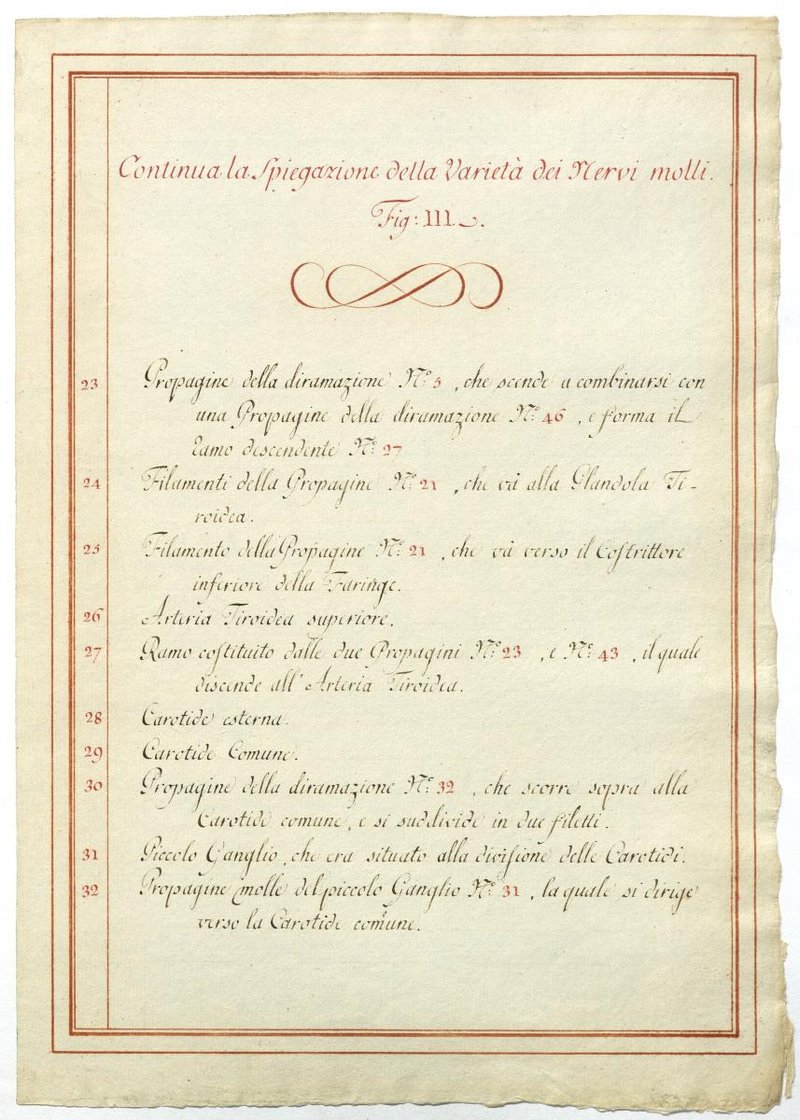 Continua la Spiegazione della Varietà dei Nervi molli.
Fig: III.
23 Propagine della diramazione N.º 5, che scende a combinarsi con
una Propagine della diramazione N.º 46, e forma il
Ramo descendente N.º 27
24 Filamenti della Propagine N.º 21, che và alla Glandola Ti-
roidea.
25 Filamento della Propagine N.º 21, che và verso il Costrittore
inferiore della Faringe.
26 Arteria Tiroidea superiore.
27 Ramo costituito dalle due Propagini N.º 23, e N.º 43, il quale
discende all' Arteria Tiroidea.
28 Carotide esterna.
29 Carotide Comune.
30 Propagine della diramazione N.º 32, che scorre sopra alla
Carotide comune, e si suddivide in due filetti.
31 Piccolo Ganglio, che era situato alla divisione delle Carotidi.
32 Propagine molle del piccolo Ganglio N.º 31, la quale si dirige
verso la Carotide comune.